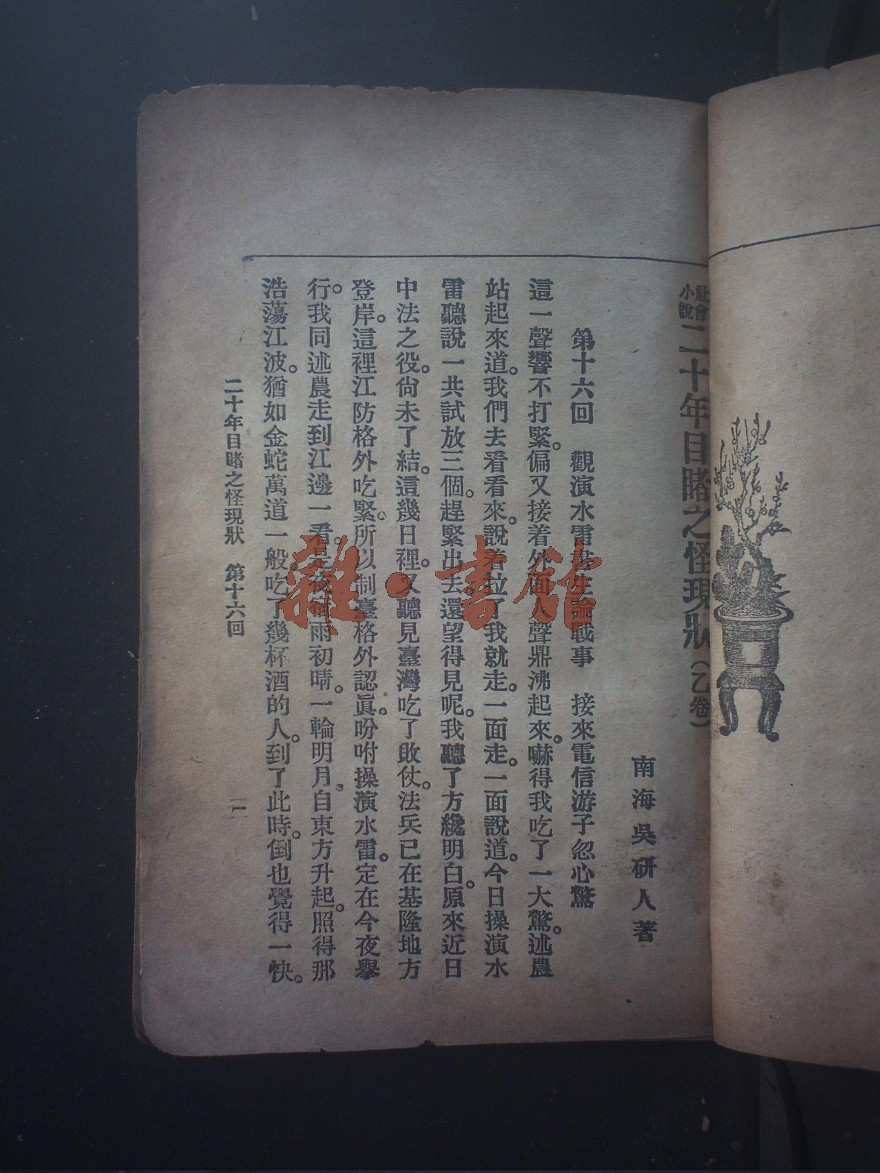 社會小說 二十年目睹之怪現狀（乙卷）
南海吳研人著
第十六回　觀演水雷書生論戰事　接來電信游子忽心驚
這一聲響不打緊。偏又接着外面人聲鼎沸起來。嚇得我吃了一大驚。述農
站起來道。我們去看看來。說着拉了我就走。一面走。一面說道。今日操演水
雷聽說一共試放三個。趕緊出去。還望得見呢。我聽了方纔明白。原來近日
中法之役。尙未了結。這幾日裡。又聽見臺灣吃了敗仗。法兵已在基隆地方
登岸。這裡江防格外吃緊。所以制臺格外認眞。吩咐操演水雷。定在今夜舉
行。我同述農走到江邊一看。是夜宿雨初晴。一輪明月。自東方升起。照得那
浩蕩江波。猶如金蛇萬道一般吃了幾杯酒的人。到了此時。倒也覺得一快。
二十年目睹之怪現狀　第十六回
一
雜·書館